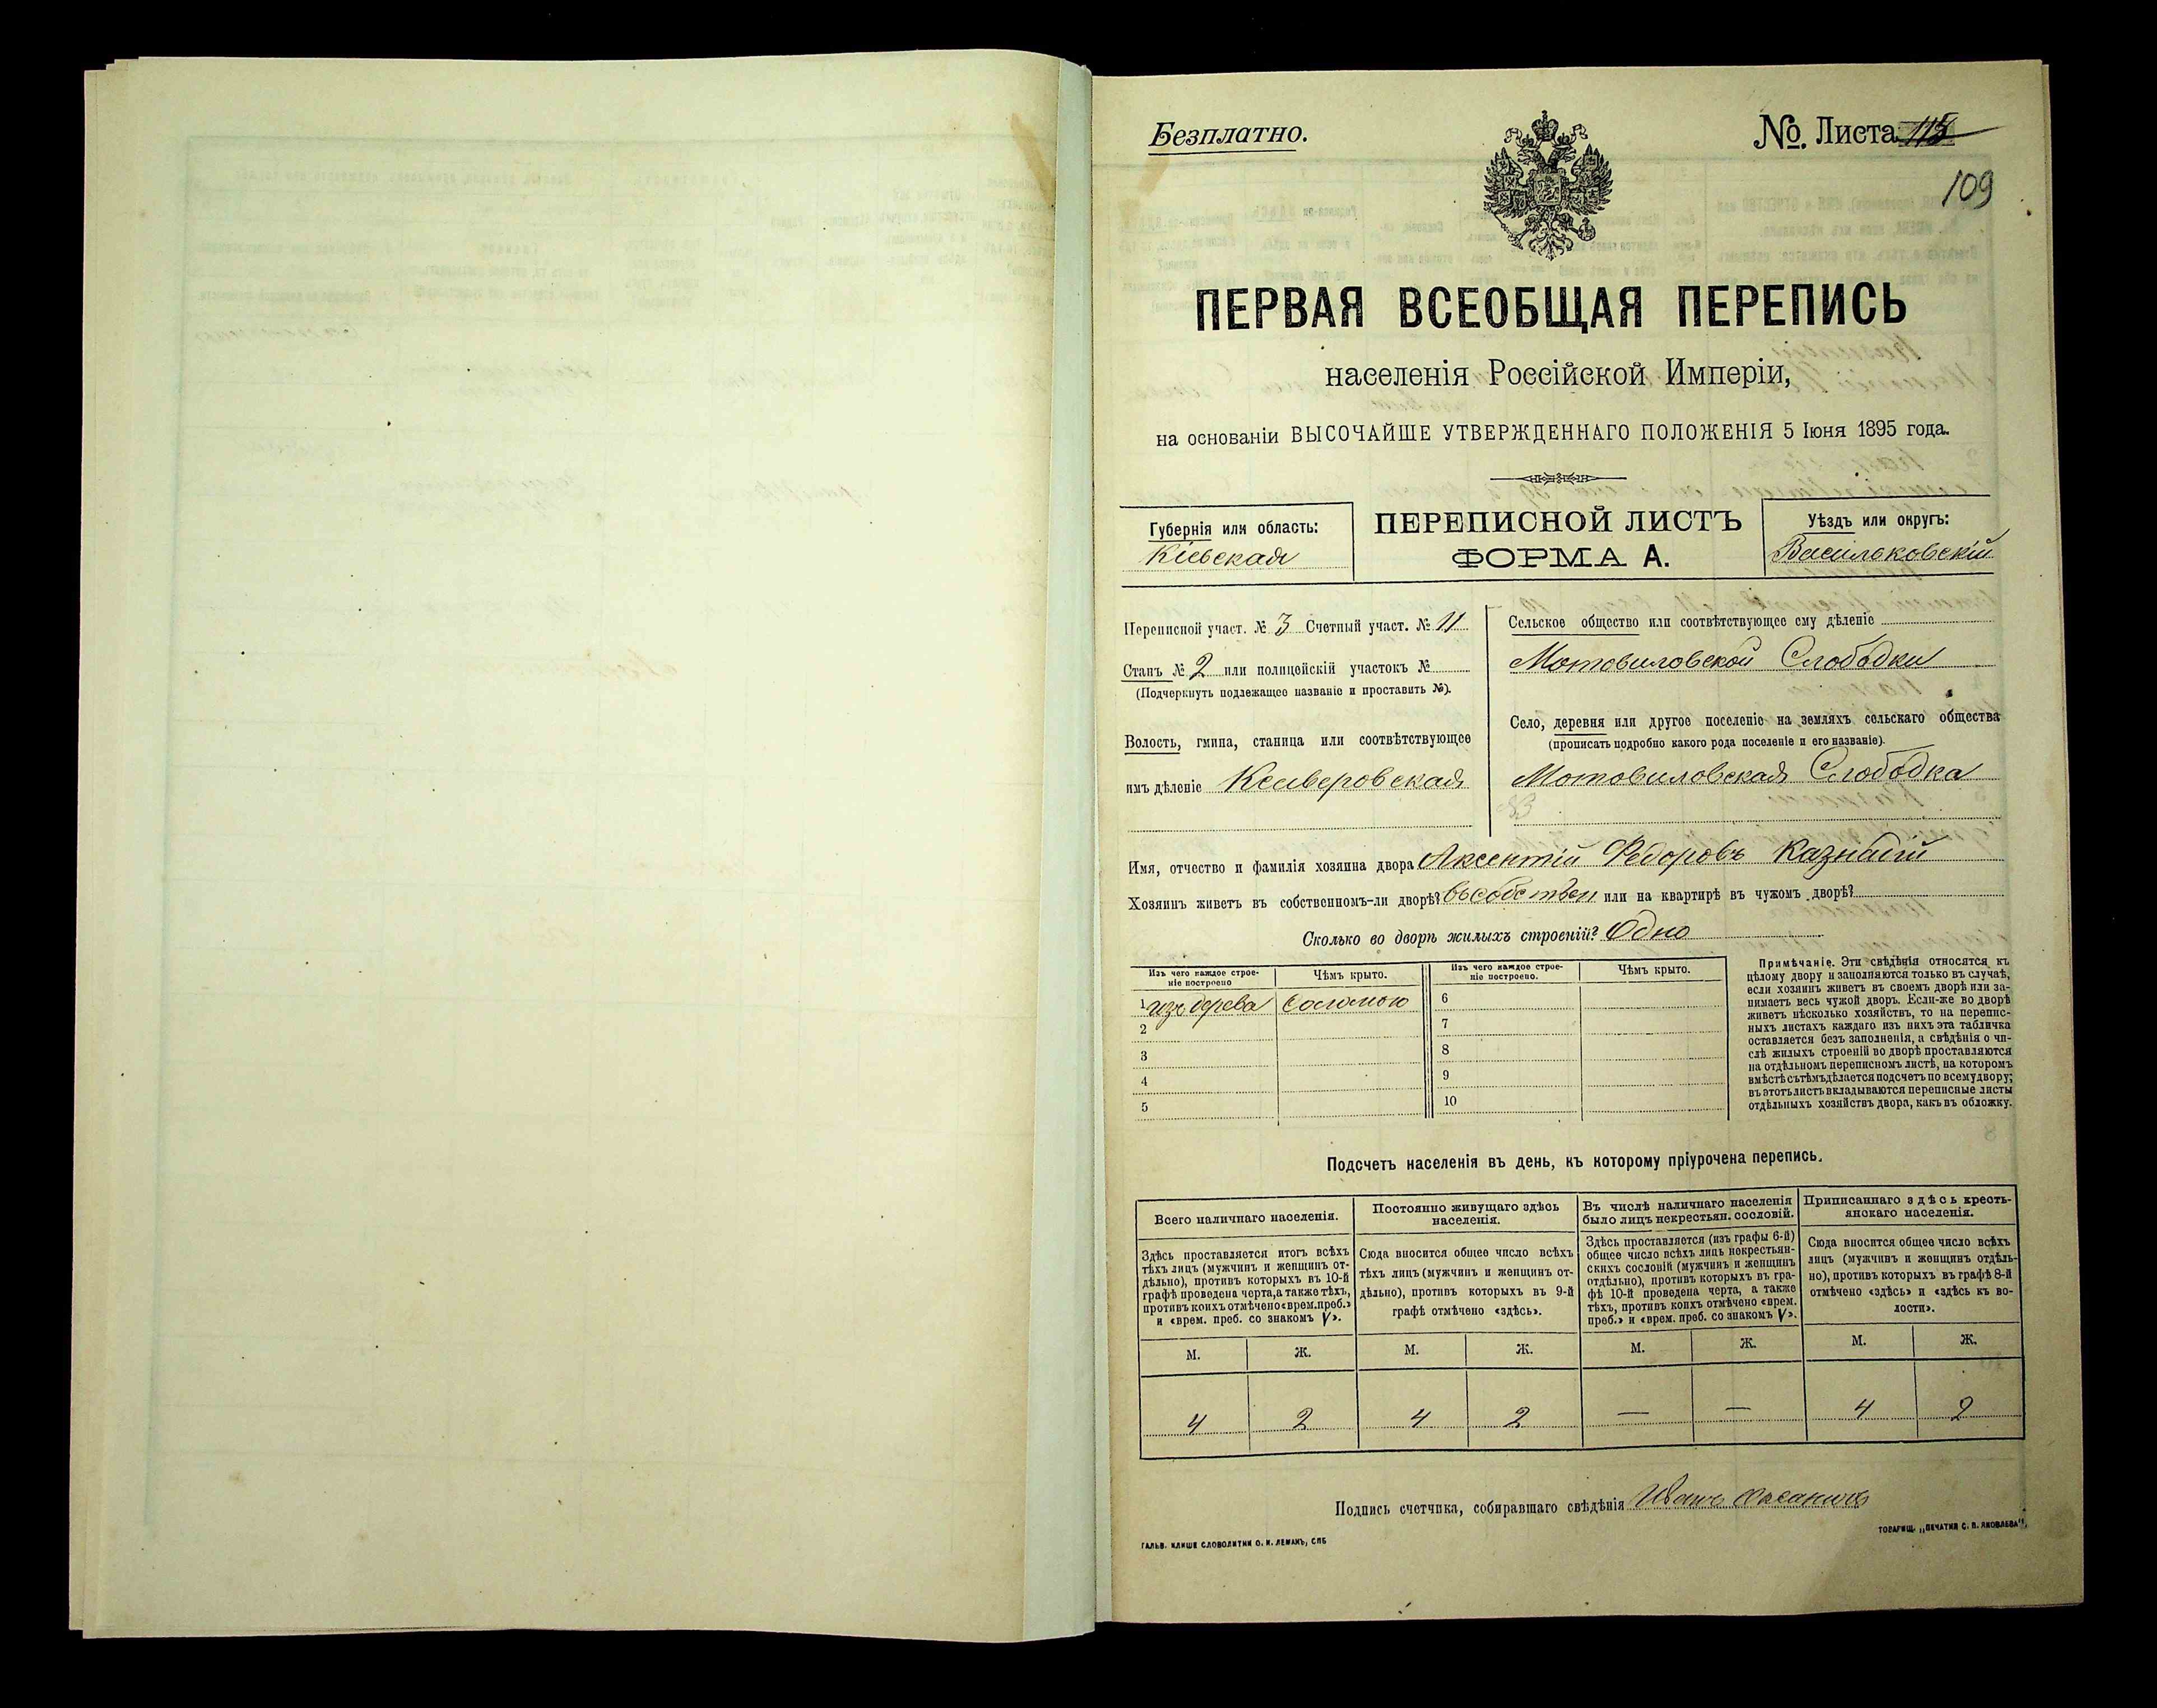 Безплатно.
№. Листа 115
109
ПЕРВАЯ ВСЕОБЩАЯ ПЕРЕПИСЬ
населенія Россійской Имперіи,
на основаніи ВЫСОЧАЙШЕ УТВЕРЖДЕННАГО ПОЛОЖЕНІЯ 5 Іюня 1895 года.
Губернія или область:
Кіевская
ПЕРЕПИСНОЙ ЛИСТЪ
ФОРМА А.
Уѣздъ или округъ:
Васильковскій
Переписной участ. № 3 Счетный участ. № 11
Станъ № 2 или полицейскій участокъ №
(Подчеркнуть подлежащее названіе и проставить №).
Волость, гмина, станица или соотвѣтствующее
имъ дѣленіе Ксаверовская
Сельское общество или соотвѣтствующее ему дѣленіе
Мотовиловской Слободки
Село, деревня или другое поселеніе на земляхъ сельскаго общества
(прописать подробно какого рода поселеніе и его названіе).
Мотовиловская Слободка
Имя, отчество и фамилія хозяина двора Аксентій Федоровъ Казнадій
Хозяинъ живетъ въ собственномъ-ли дворѣ? въ собствен или на квартирѣ въ чужомъ дворѣ?
Сколько во дворѣ жилыхъ строеній? Одно
Изъ чего каждое строе-
ніе построено
Чѣмъ крыто.
Изъ чего каждое строе-
ніе построено.
Чѣмъ крыто.
1 изъ дерева Соломою
2
3
4
5
6
7
8
9
10
Примѣчаніе. Эти свѣдѣнія относятся къ
цѣлому двору и заполняются только въ случаѣ,
если хозяинъ живетъ въ своемъ дворѣ или за-
нимаетъ весь чужой дворъ. Если-же во дворѣ
живетъ нѣсколько хозяйствъ, то на перепис-
ныхъ листахъ каждаго изъ нихъ эта табличка
оставляется безъ заполненія, а свѣдѣнія о чи-
слѣ жилыхъ строеній во дворѣ проставляются
на отдѣльномъ переписномъ листѣ, на которомъ
вмѣстѣ съ тѣмъ дѣлается подсчетъ по всему двору;
въ этотъ листъ вкладываются переписные листы
отдѣльныхъ хозяйствъ двора, какъ въ обложку.
Подсчетъ населенія въ день, къ которому пріурочена перепись.
Всего наличнаго населенія.
Здѣсь проставляется итогъ всѣхъ
тѣхъ лицъ (мужчинъ и женщинъ от-
дѣльно), противъ которыхъ въ 10-й
графѣ проведена черта, а также тѣхъ,
противъ коихъ отмѣчено «врем. преб.»
и «врем. преб. со знакомъ V».
Постоянно живущаго здѣсь
населенія.
Сюда вносится общее число всѣхъ
тѣхъ лицъ (мужчинъ и женщинъ от-
дѣльно), противъ которыхъ въ 9-й
графѣ отмѣчено «здѣсь».
Въ числѣ наличнаго населенія
было лицъ некрестьян. сословій.
Здѣсь проставляется (изъ графы 6-й)
общее число всѣхъ лицъ некрестьян-
скихъ сословій (мужчинъ и женщинъ
отдѣльно), противъ которыхъ въ гра-
фѣ 10-й проведена черта, а также
тѣхъ, противъ коихъ отмѣчено «врем.
преб.» и «врем. преб. со знакомъ V».
Приписаннаго здѣсь кресть-
янскаго населенія.
Сюда вносится общее число всѣхъ
лицъ (мужчинъ и женщинъ отдѣль-
но), противъ которыхъ въ графѣ 8-й
отмѣчено «здѣсь» и «здѣсь къ во-
лости».
М. Ж. М. Ж. М. Ж. М. Ж.
4 2 4 2 — — 4 2
Подпись счетчика, собиравшаго свѣдѣнія Иванъ
ГАЛЬВ. КЛИШЕ СЛОВОЛИТНИ О. И. ЛЕМАНЪ, СПБ
ТОВАРИЩ. „ПЕЧАТНЯ С. П. ЯКОВЛЕВА“.